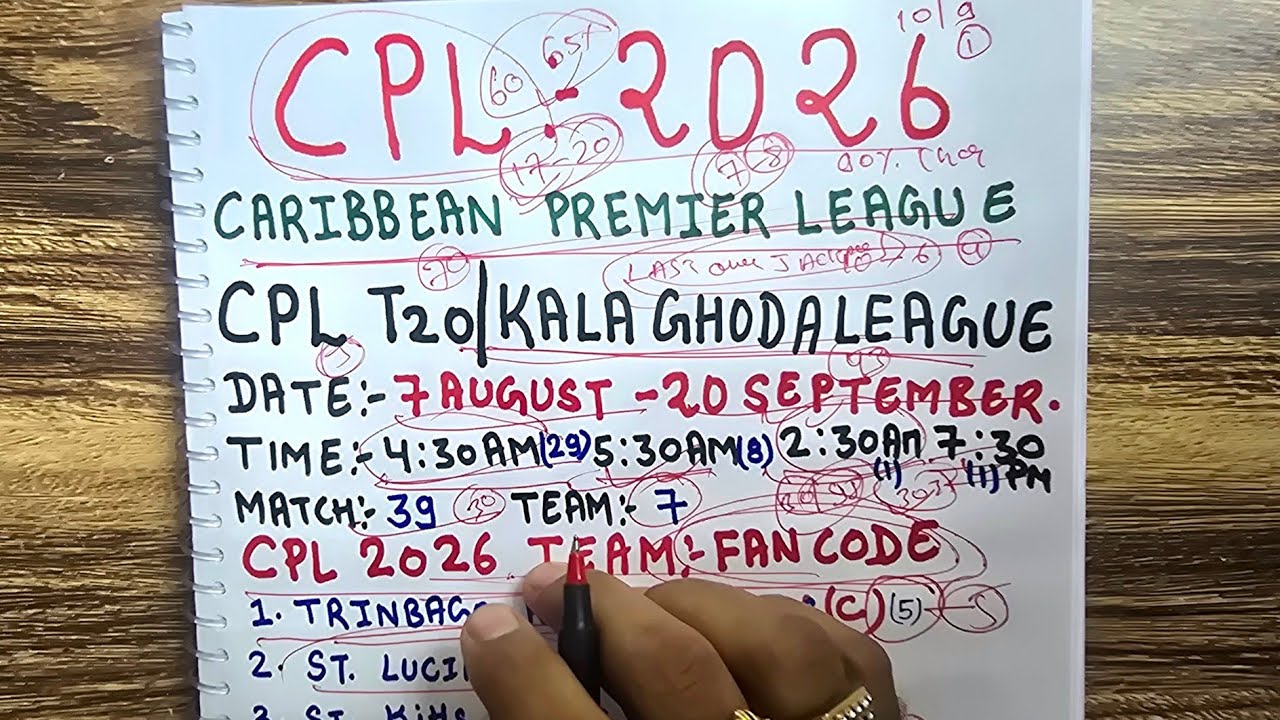 10/9
1
65x
60
CPL:2026
17-20
7-8
CARIBBEAN PREMIER LEAGUE
70
LAST over
CPL T20/KALA GHODA LEAGUE
5
93
DATE:- 7 AUGUST - 20 SEPTEMBER.
TIME:- 4:30AM(29) 5:30AM(8) 2:30AM 7:30
(1) (1) PM
MATCH:- 39 30 TEAM:- 7
CPL 2026 TEAM:- FAN CODE
1. TRINBAG (C) (5) 5
2. ST. LUCI
3. ST. Kitts